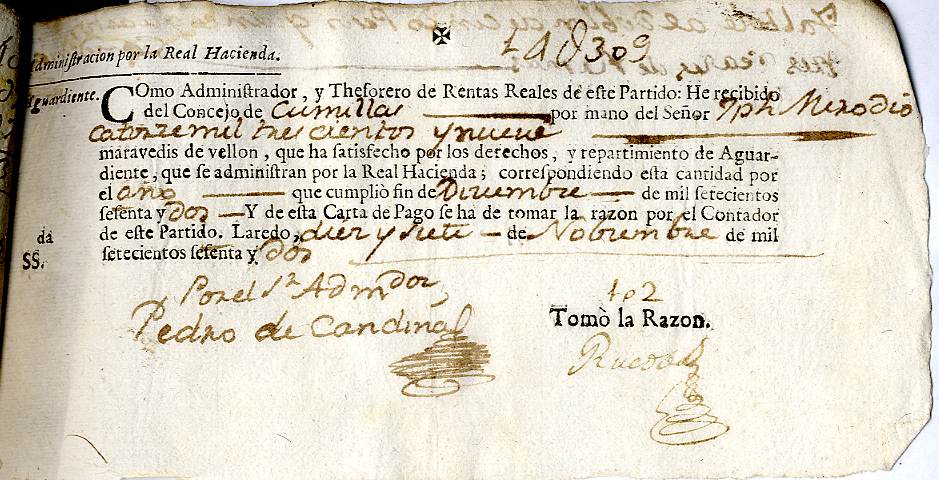 Administracion por la Real Hacienda.
Aguardiente.
COmo Administrador, y Thesorero de Rentas Reales de este Partido: He recibido
del Concejo de Cumillas por mano del Señor Jph Merodio
catorze mil trescientos y nueve
maravedis de vellon, que ha satisfecho por los derechos, y repartimiento de Aguar-
diente, que se administran por la Real Hacienda; correspondiendo esta cantidad por
el año que cumpliò fin de Diziembre de mil setecientos
sesenta y dos Y de esta Carta de Pago se ha de tomar la razon por el Contador
de este Partido. Laredo, diez y siete de Nobiembre de mil
setecientos sesenta y dos
da
SS.
Por el Sr Admdor,
Pedro de Candinal
Tomò la Razon.
Rueda